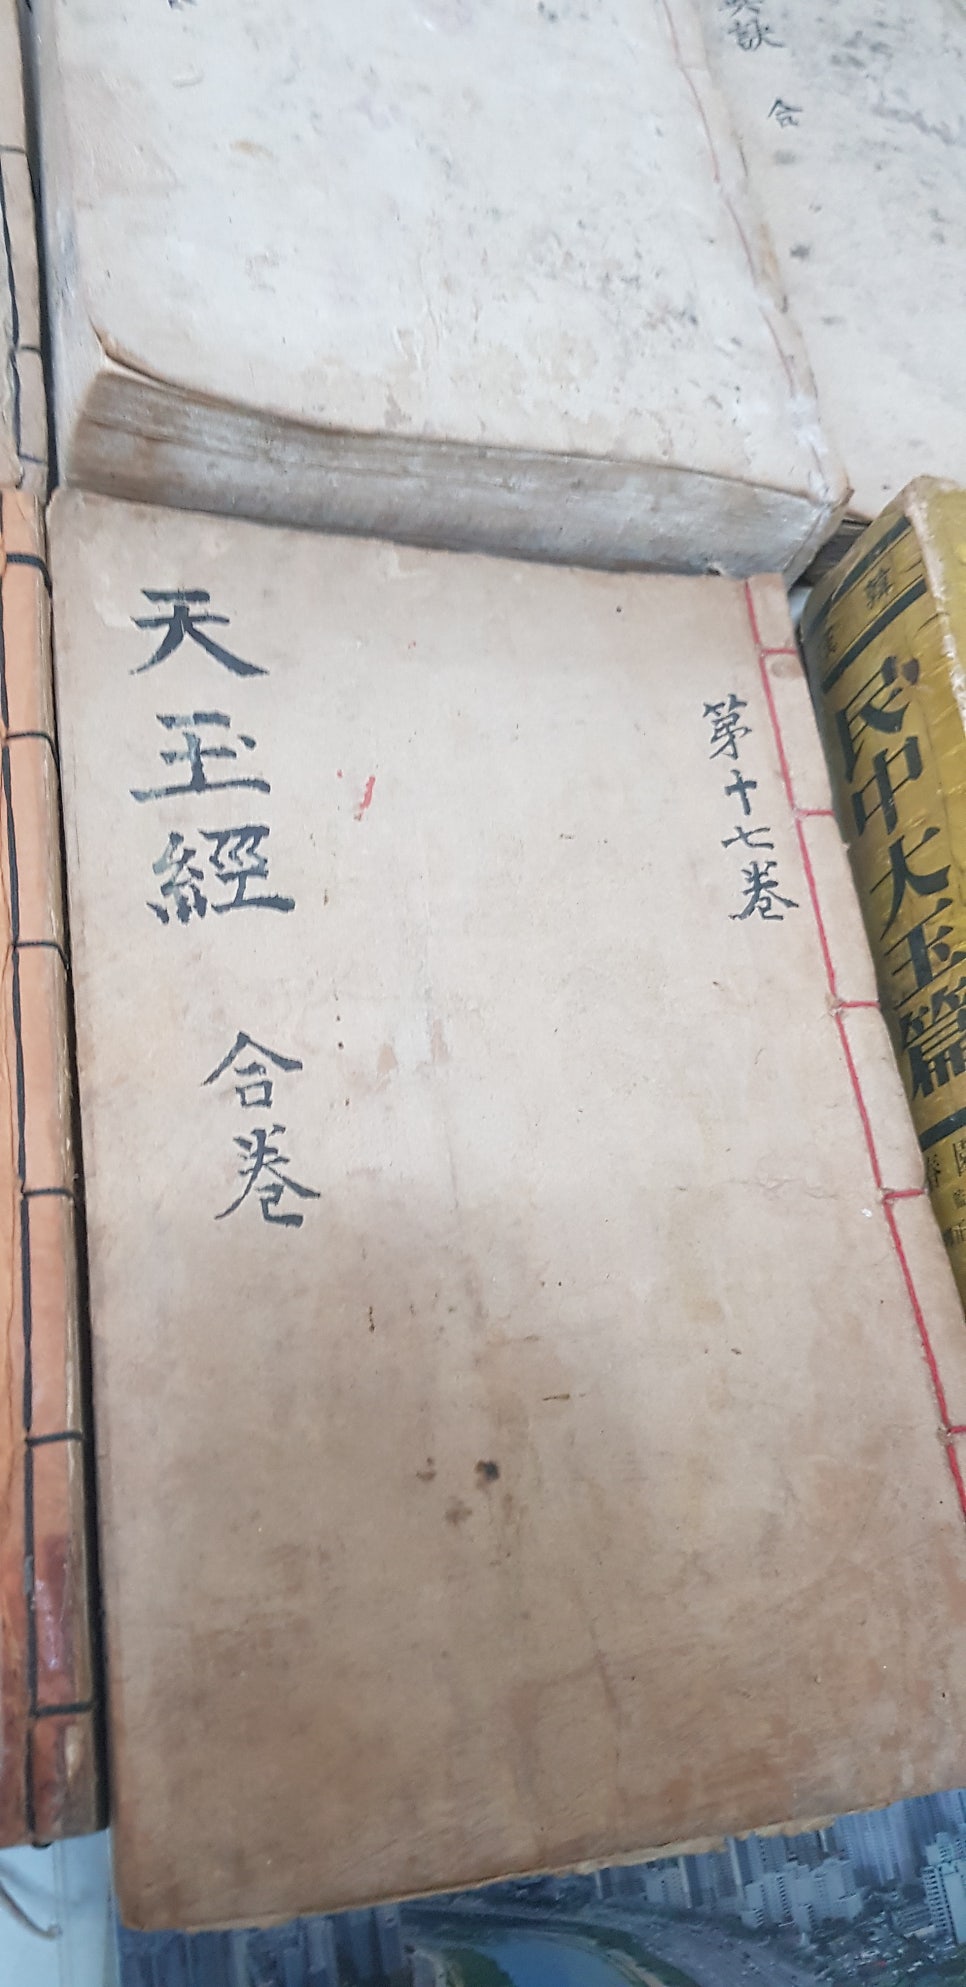 天玉經 合卷
第十七卷
訣 合
民中大玉篇